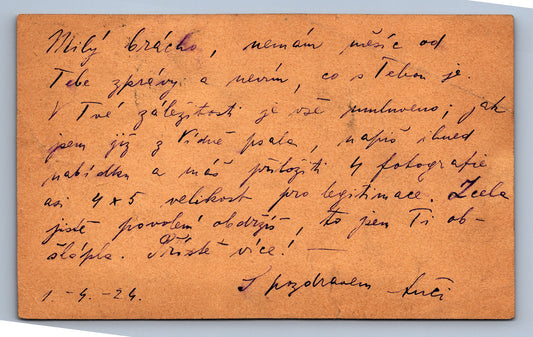 Milý brácho, nemám měsíc od
Tebe zprávy a nevím, co s Tebou je.
V Tvé záležitosti je vše umluveno; jak
jsem již z Vídně psala, napiš ihned
nabídku a máš přiložiti 4 fotografie
asi 4x5 velikost pro legitimace. Zcela
jistě povolení obdržíš, to jsem Ti ob-
šlápla. Příště více! —
S pozdravem Anči
1.-4.-24.